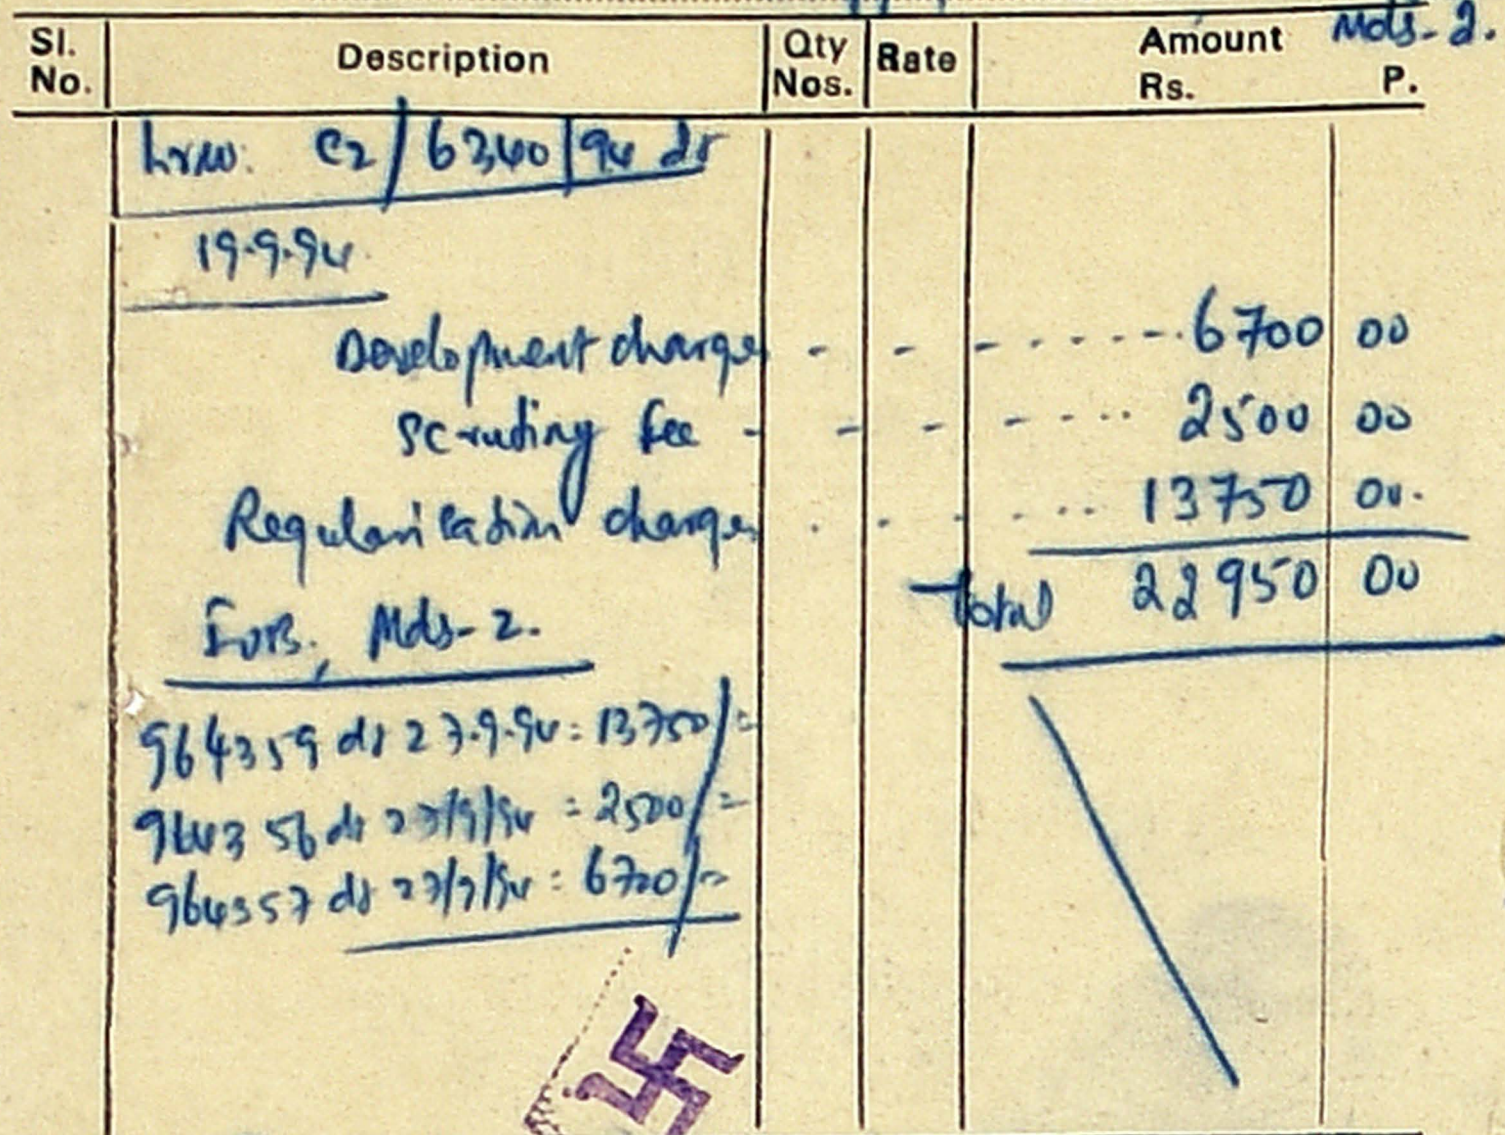 Mds-2.
Sl. No. Description Qty Nos. Rate Amount Rs. P.
Lr.No. C2/6340/94 dt
19.9.94
Development charges - - - - - - - 6700 00
Scrutiny fee - - - - - - - 2500 00
Regularisation charges . . . . . . . 13750 00.
Total 22950 00
Mds-2.
964359 dt 27.9.94 = 13750/=
964356 dt 27/9/94 = 2500/=
964357 dt 27/9/94 = 6700/=